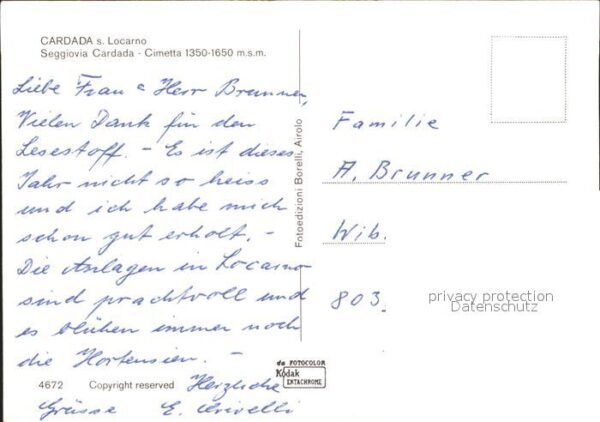 CARDADA s. Locarno
Seggiovia Cardada - Cimetta 1350-1650 m.s.m.
Liebe Frau & Herr Brunner,
Vielen Dank für den
Lesestoff. - Es ist dieses
Jahr nicht so heiss
und ich habe mich
schon gut erholt. -
Die Anlagen in Locarno
sind prachtvoll und
es blühen immer noch
die Hortensien. -
Herzliche
Grüsse E.
4672 Copyright reserved
Fotoedizioni Borelli, Airolo
Familie
A. Brunner
Wib.
803
da FOTOCOLOR
Kodak
EKTACHROME
privacy protection
Datenschutz